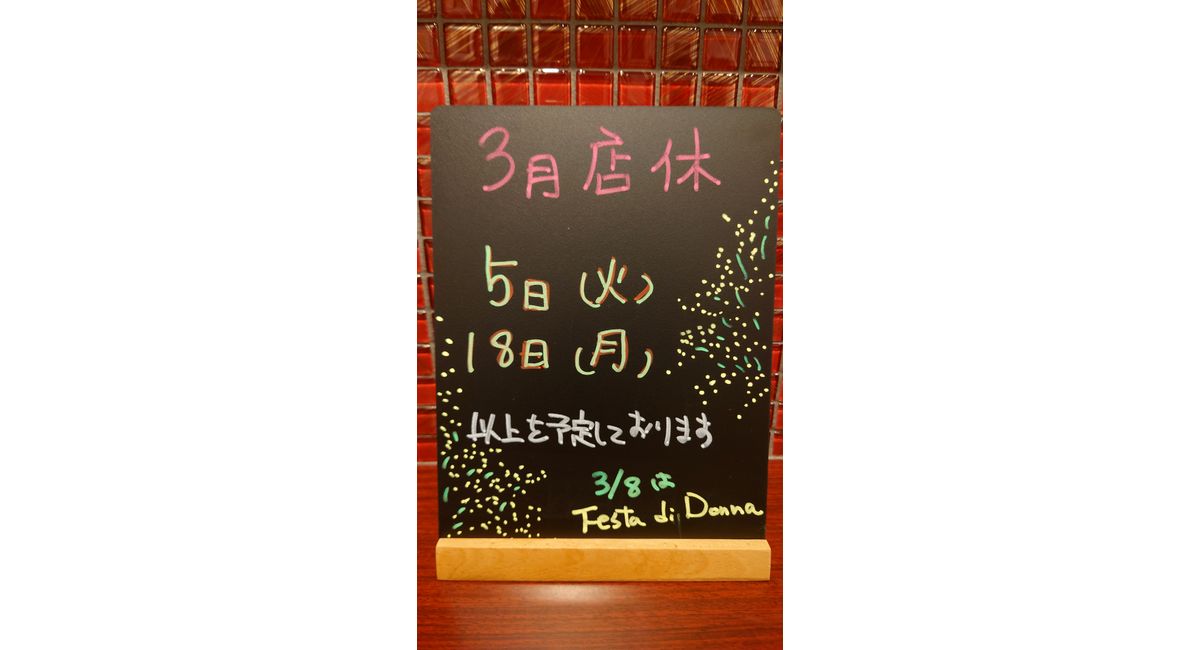 3月店休
5日(火)
18日(月)
以上を予定しております
3/8は
Festa di Donna